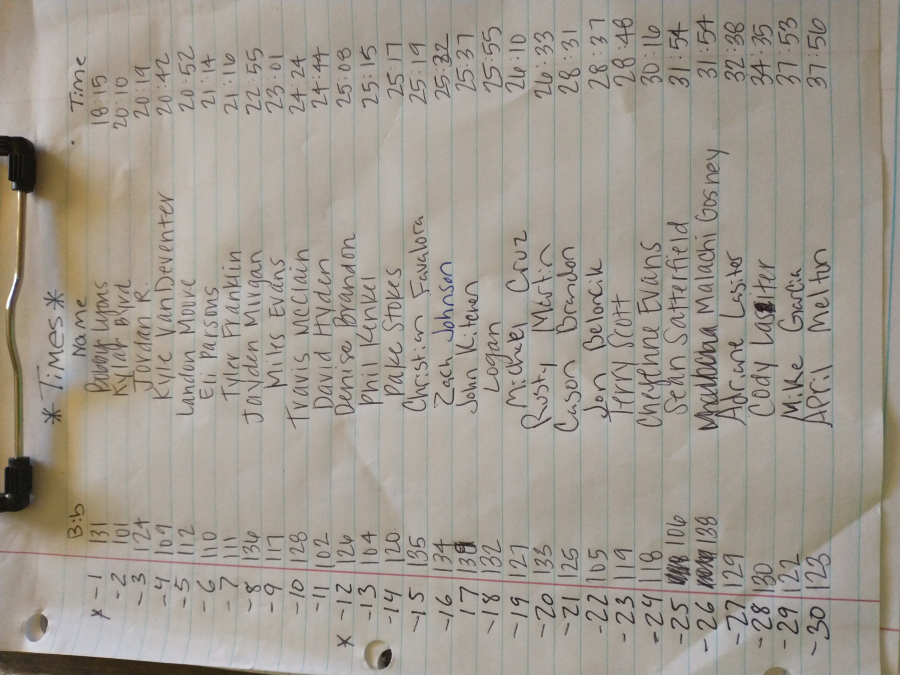 * Times *
Bib Name Time
* -1 131 Lyons 18:15
-2 101 Kyllar Byrd 20:10
-3 124 Jordan R. 20:19
-4 109 Kyle VanDeventer 20:42
-5 112 Landon Moore 20:52
-6 110 Eli Parsons 21:14
-7 111 Tyler Franklin 21:16
-8 136 Jayden Morgan 22:55
-9 117 Miles Evans 23:01
-10 128 Travis McClain 24:24
-11 102 David Hyden 24:44
* -12 126 Denise Brandon 25:08
-13 104 Phil Kenkel 25:15
-14 120 Pake Stokes 25:17
-15 135 Christian Favalora 25:19
-16 134 Zach Johnson 25:32
-17 139 John Kitchen 25:37
-18 132 Logan 25:55
-19 127 Michael Cruz 26:10
-20 133 Rusty Martin 26:33
-21 125 Cason Brandon 28:31
-22 105 Jon Beloncik 28:37
-23 119 Terry Scott 28:48
-24 118 Cheyenne Evans 30:16
-25 106 Sean Satterfield 31:54
-26 138 Malachi Gosney 31:54
-27 129 Adriane Lasiter 32:38
-28 130 Cody Lasiter 34:35
-29 122 Mike Garcia 37:53
-30 123 April Melton 37:56